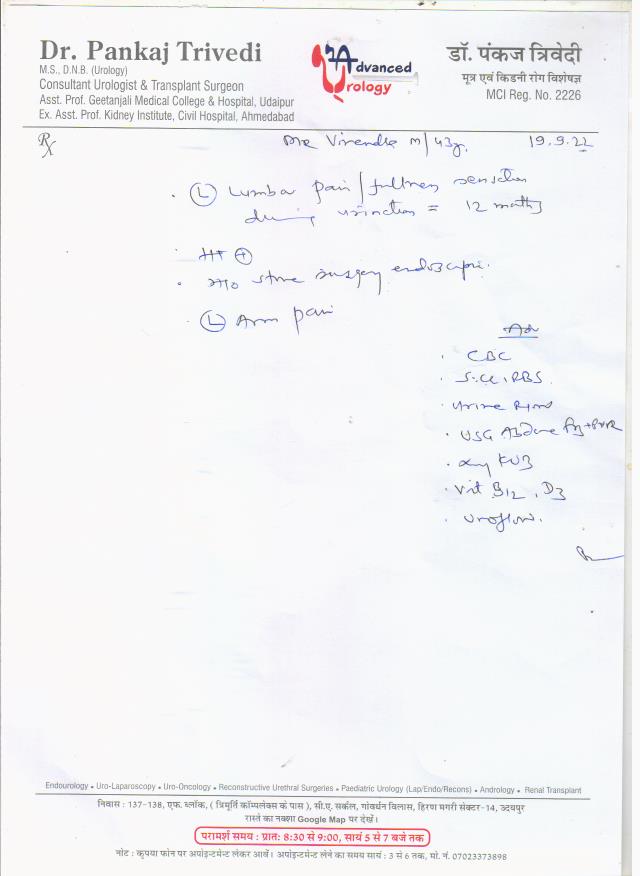 Dr. Pankaj Trivedi
M.S., D.N.B. (Urology)
Consultant Urologist & Transplant Surgeon
Asst. Prof. Geetanjali Medical College & Hospital, Udaipur
Ex. Asst. Prof. Kidney Institute, Civil Hospital, Ahmedabad
Advanced
Urology
डॉ. पंकज त्रिवेदी
मूत्र एवं किडनी रोग विशेषज्ञ
MCI Reg. No. 2226
Rx
Mr Virendra M/43y. 19.9.22
L Lumbar pain/fullness sensation
during urination = 12 months
HT +
H/O stone surgery endoscopic.
L Arm pain
Adv
CBC
S.Cr, RBS
Urine R/M
USG Abdomen +PVR
Xray KUB
Vit B12, D3
Uroflow.
Endourology • Uro-Laparoscopy • Uro-Oncology • Reconstructive Urethral Surgeries • Paediatric Urology (Lap/Endo/Recons) • Andrology • Renal Transplant
निवास : 137-138, एफ. ब्लॉक, ( त्रिमूर्ति कॉम्पलेक्स के पास ), सी.ए. सर्कल, गोवर्धन विलास, हिरण मगरी सेक्टर-14, उदयपुर
रास्ते का नक्शा Google Map पर देखें।
परामर्श समय : प्रात: 8:30 से 9:00, सायं 5 से 7 बजे तक
नोट : कृपया फोन पर अपोइन्टमेन्ट लेकर आवें। अपोइन्टमेन्ट लेने का समय सायं : 3 से 6 तक, मो. नं. 07023373898